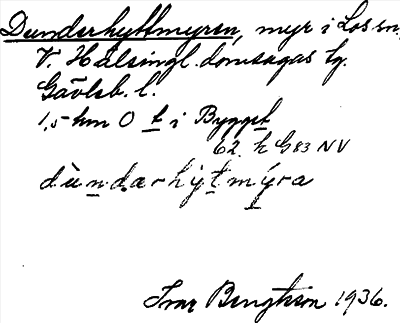 Dunderhyttmyren, myr i Los sn,
V. Hälsingl. domsagas tg.
Gävleb. l.
1,5 km O t i Byggst
62. k G 83 NV
dùndarhytmýra
Ivar Bengtsson 1936.